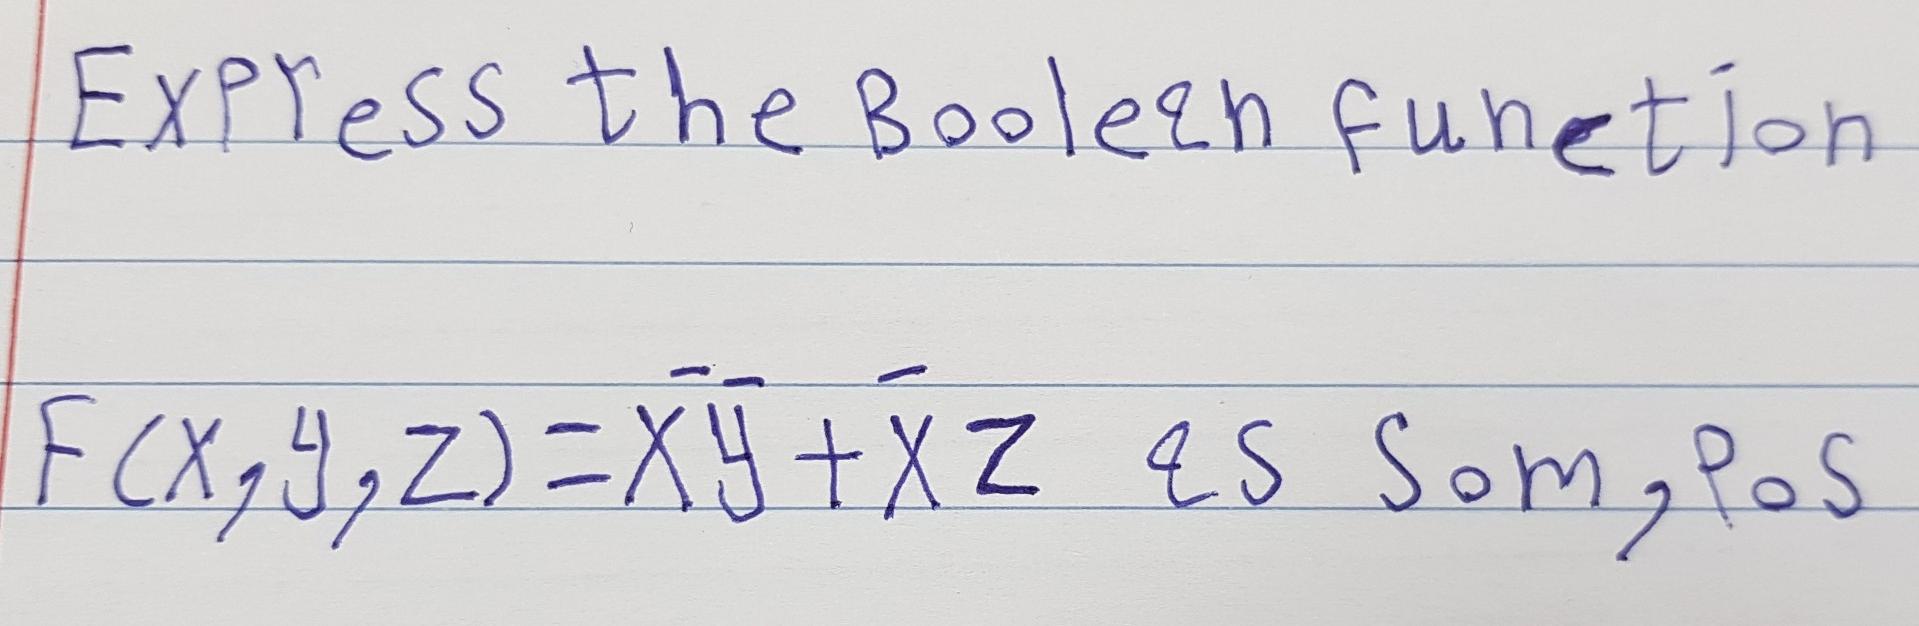 Express the Boolean function
F(x,y,z)=x̄ȳ+x̄z as Som,Pos